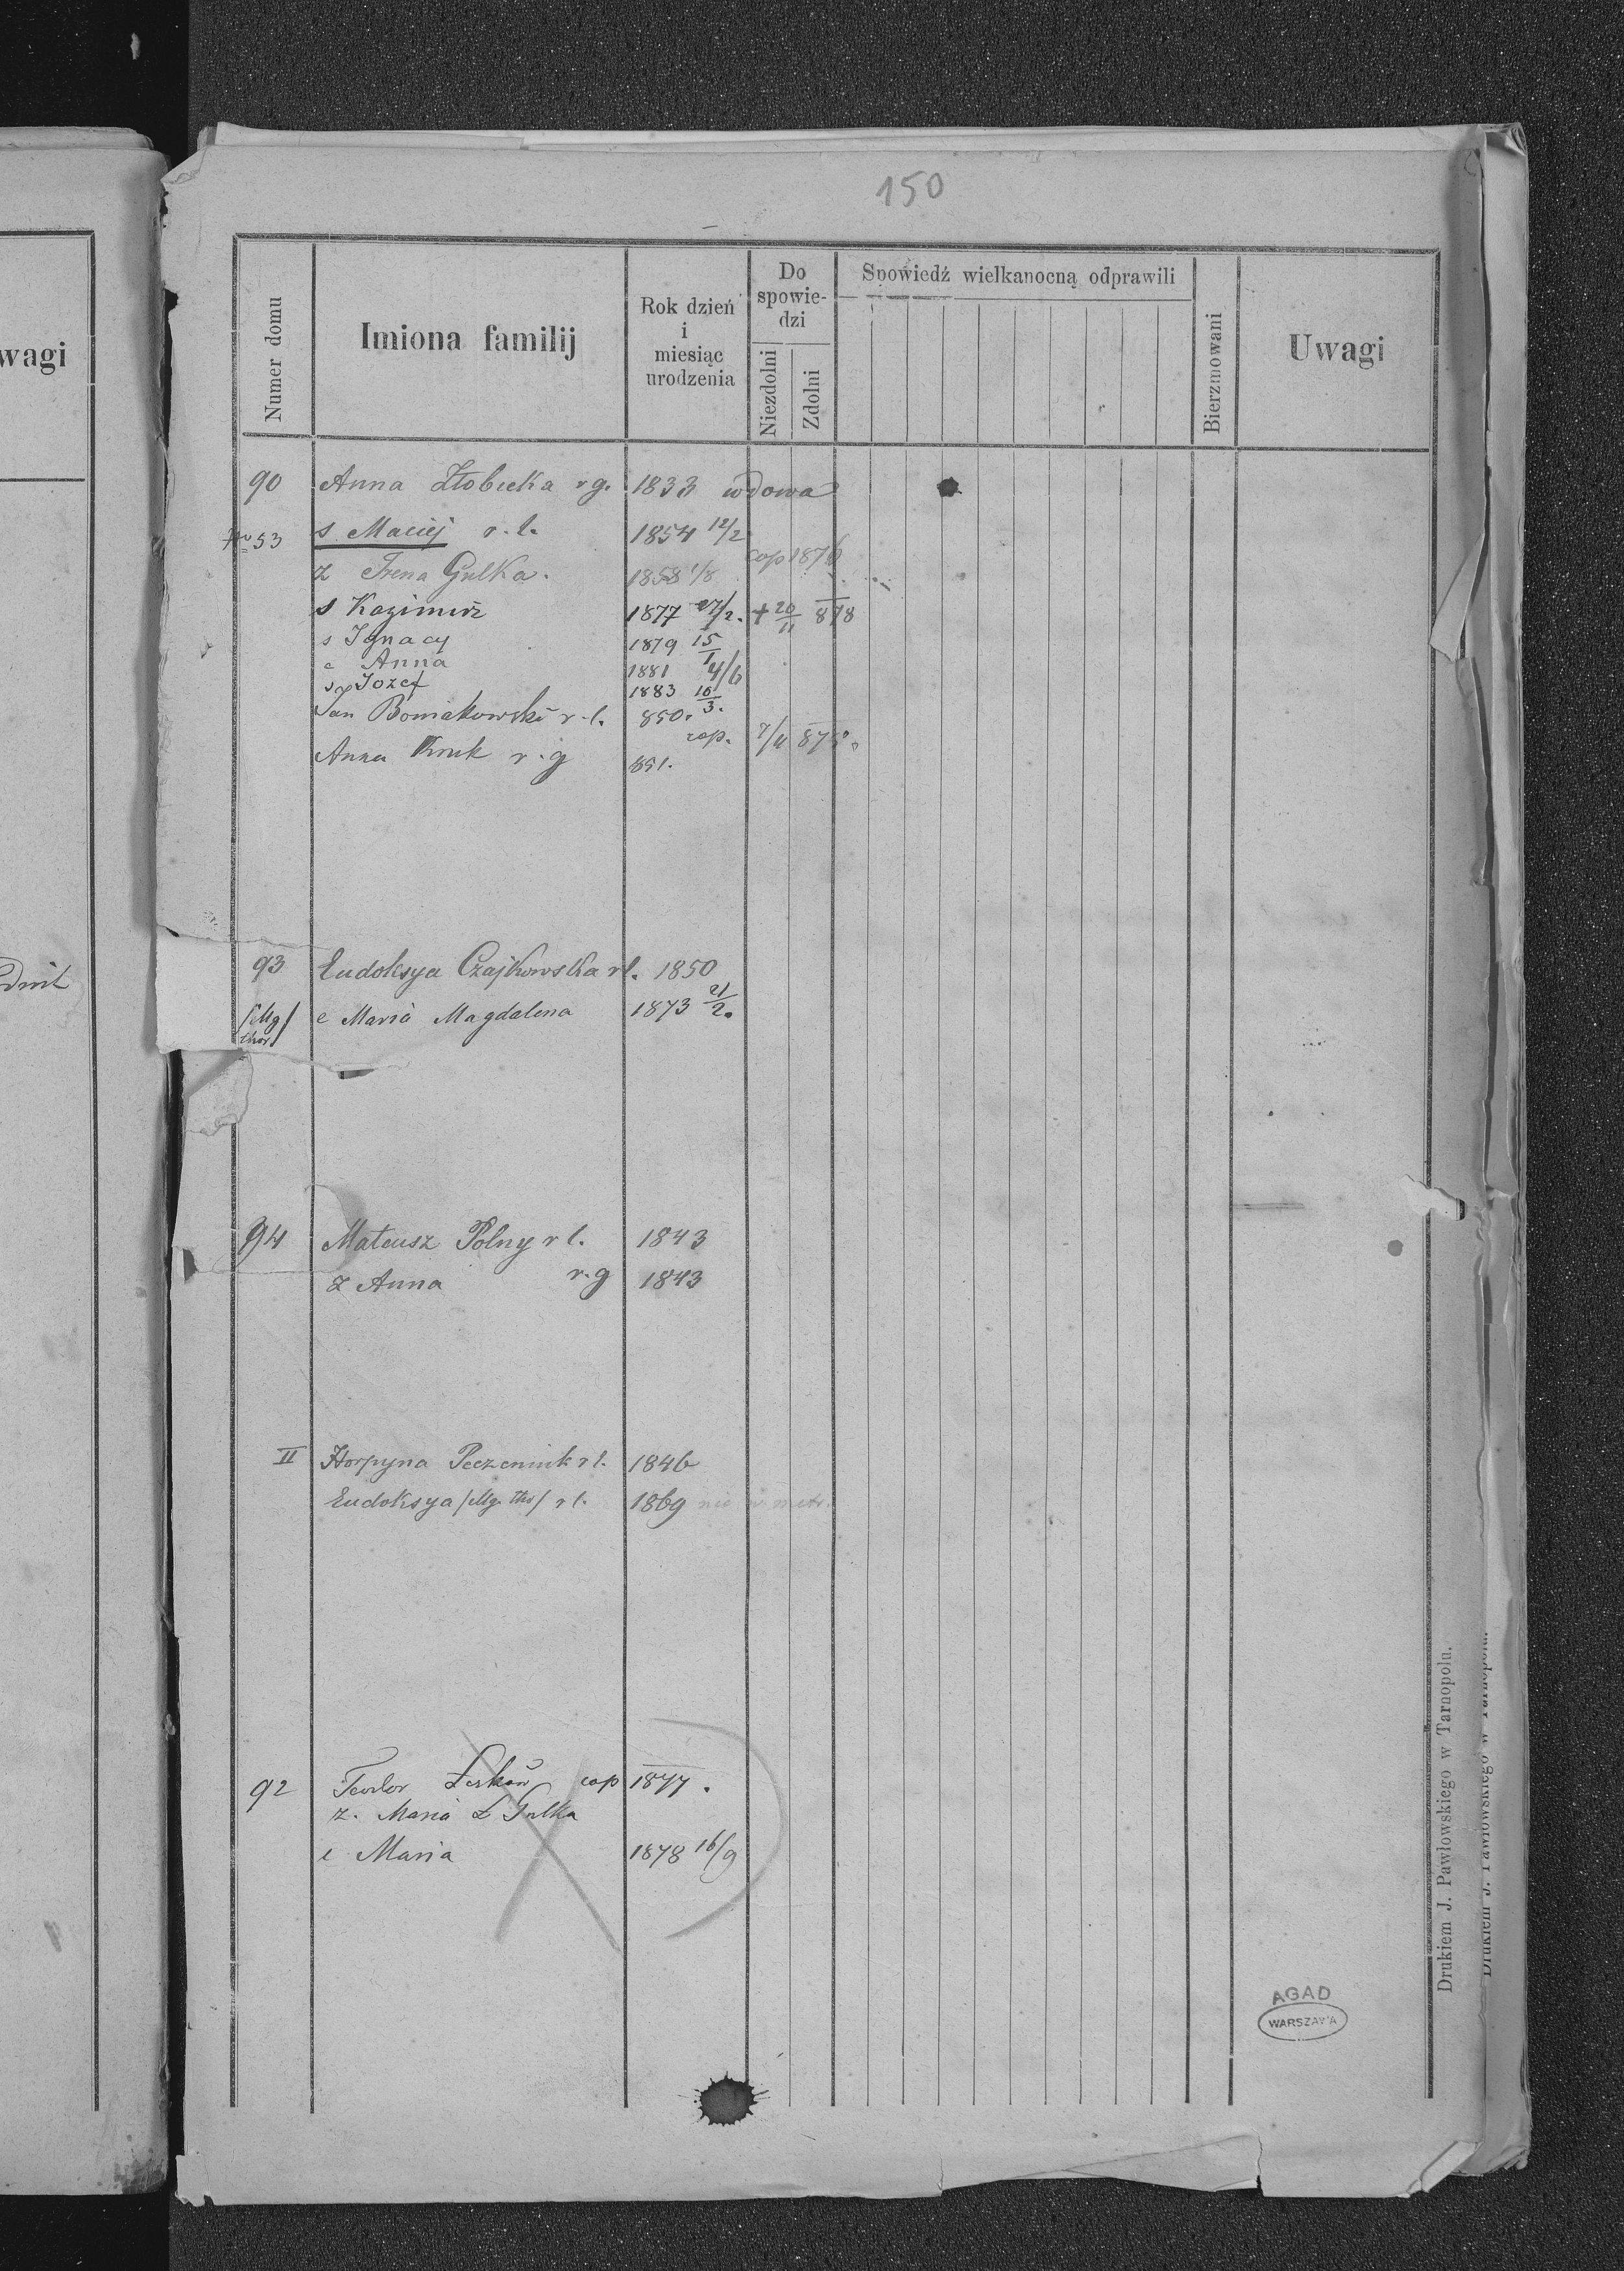 150
wagi
Numer domu
Imiona familij
Rok dzień
i
miesiąc
urodzenia
Do
spowie-
dzi
Niezdolni
Zdolni
Spowiedź wielkanocną odprawili
Bierzmowani
Uwagi
90 Anna Złobicka r g. 1833 wdowa
No 53 s Maciej r. l. 1854 12/2
ż Irena Gulka. 1858 1/8 cop 1876
s Kazimirz 1877 27/2. + 20/11 878
s Ignacy 1879 15/1
c Anna 1881 4/6
s Józef 1883 10/3.
Jan Boniakowski r. l. 850.
cop. 7/11 875.
Anna Kruk r. g 851.
93 Eudoksya Czajkowska r l. 1850
/Mg thor/ c Maria Magdalena 1873 21/2.
94 Mateusz Polny r l. 1843
ż Anna r. g 1843
II Horpyna Peczeniuk r l. 1846
Eudoksya /Mg. tho/ r l. 1869 nie w metr.
92 Teodor Leśków cop 1877.
ż. Maria Gulka
c Maria 1878 16/9
Drukiem J. Pawłowskiego w Tarnopolu.
Drukiem J. Pawłowskiego w Tarnopolu.
AGAD
WARSZAWA